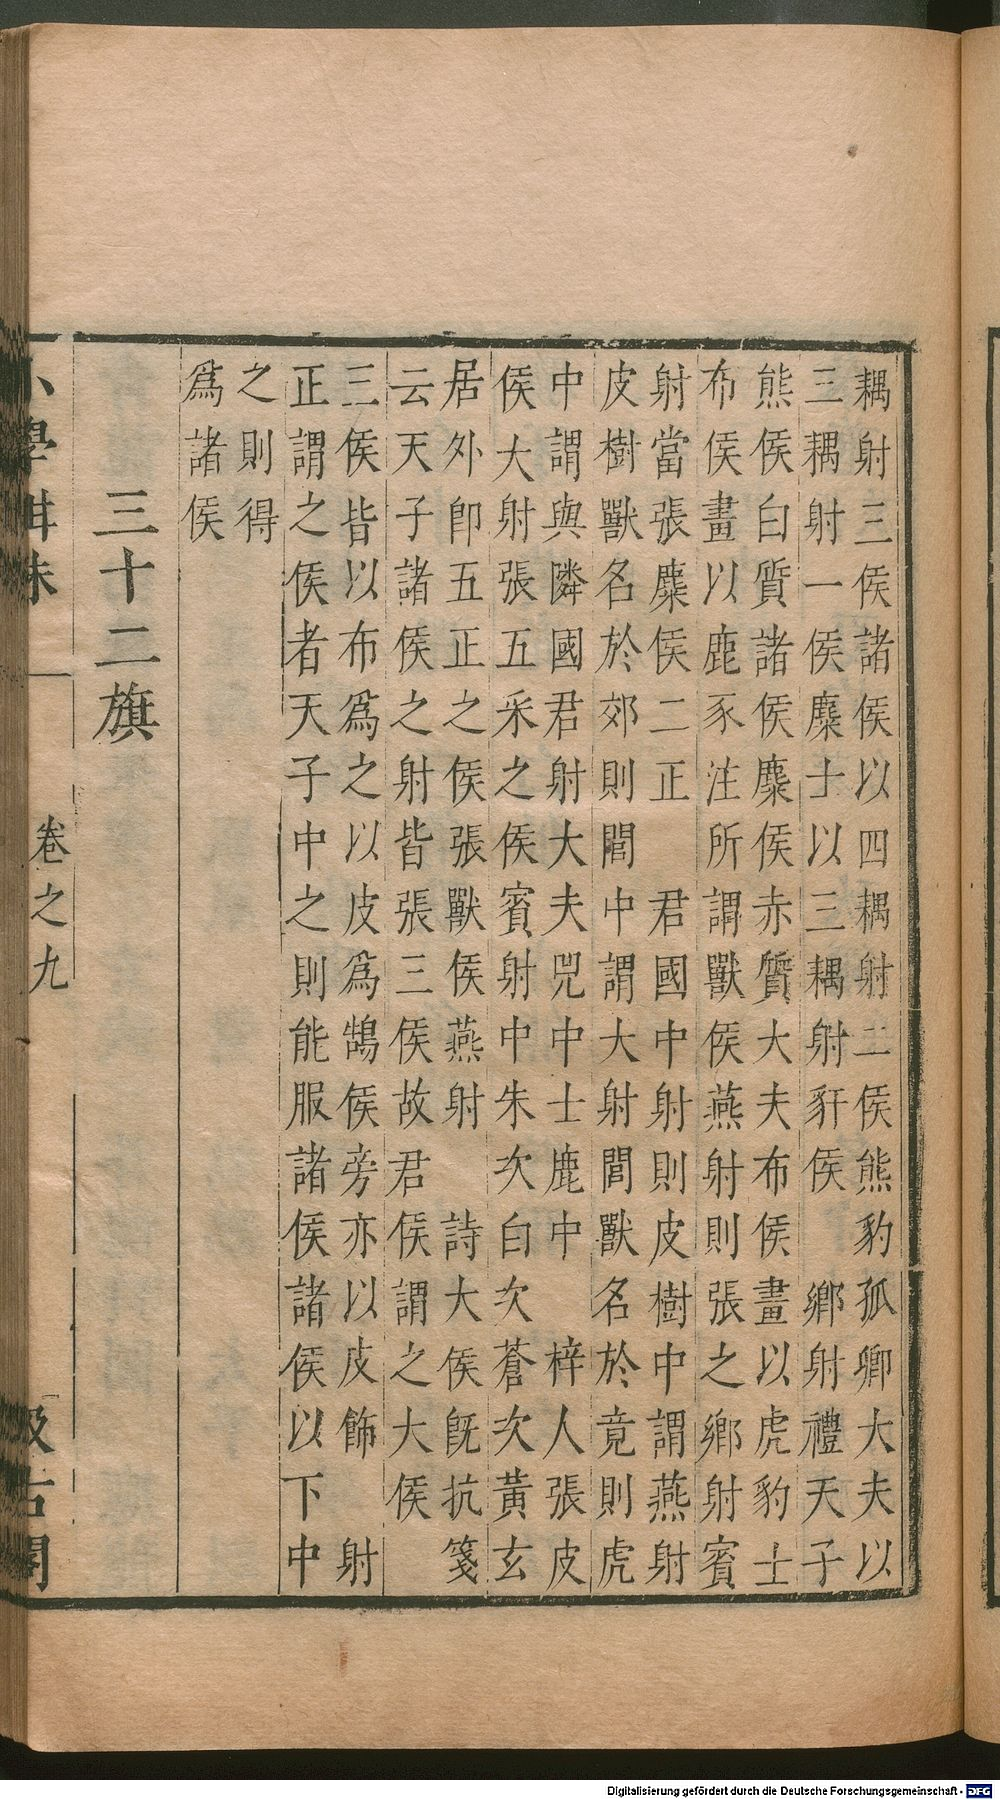 耦射三侯諸侯以四耦射二侯熊豹孤卿大夫以
三耦射一侯麋士以三耦射豻侯　鄉射禮天子
熊侯白質諸侯麋侯赤質大夫布侯畫以虎豹士
布侯畫以鹿豕注所謂獸侯燕射則張之鄉射賓
射當張麋侯二正　君國中射則皮樹中謂燕射
皮樹獸名於郊則閭中謂大射閭獸名於竟則虎
中謂與隣國君射大夫兕中士鹿中　梓人張皮
侯大射張五采之侯賓射中朱次白次蒼次黃玄
居外卽五正之侯張獸侯燕射　詩大侯旣抗箋
云天子諸侯之射皆張三侯故君侯謂之大侯
三侯皆以布爲之以皮爲鵠侯旁亦以皮飾　射
正謂之侯者天子中之則能服諸侯諸侯以下中
之則得
爲諸侯
三十二旗
小學紺珠　卷之九　汲古閣
Digitalisierung gefördert durch die Deutsche Forschungsgemeinschaft - DFG